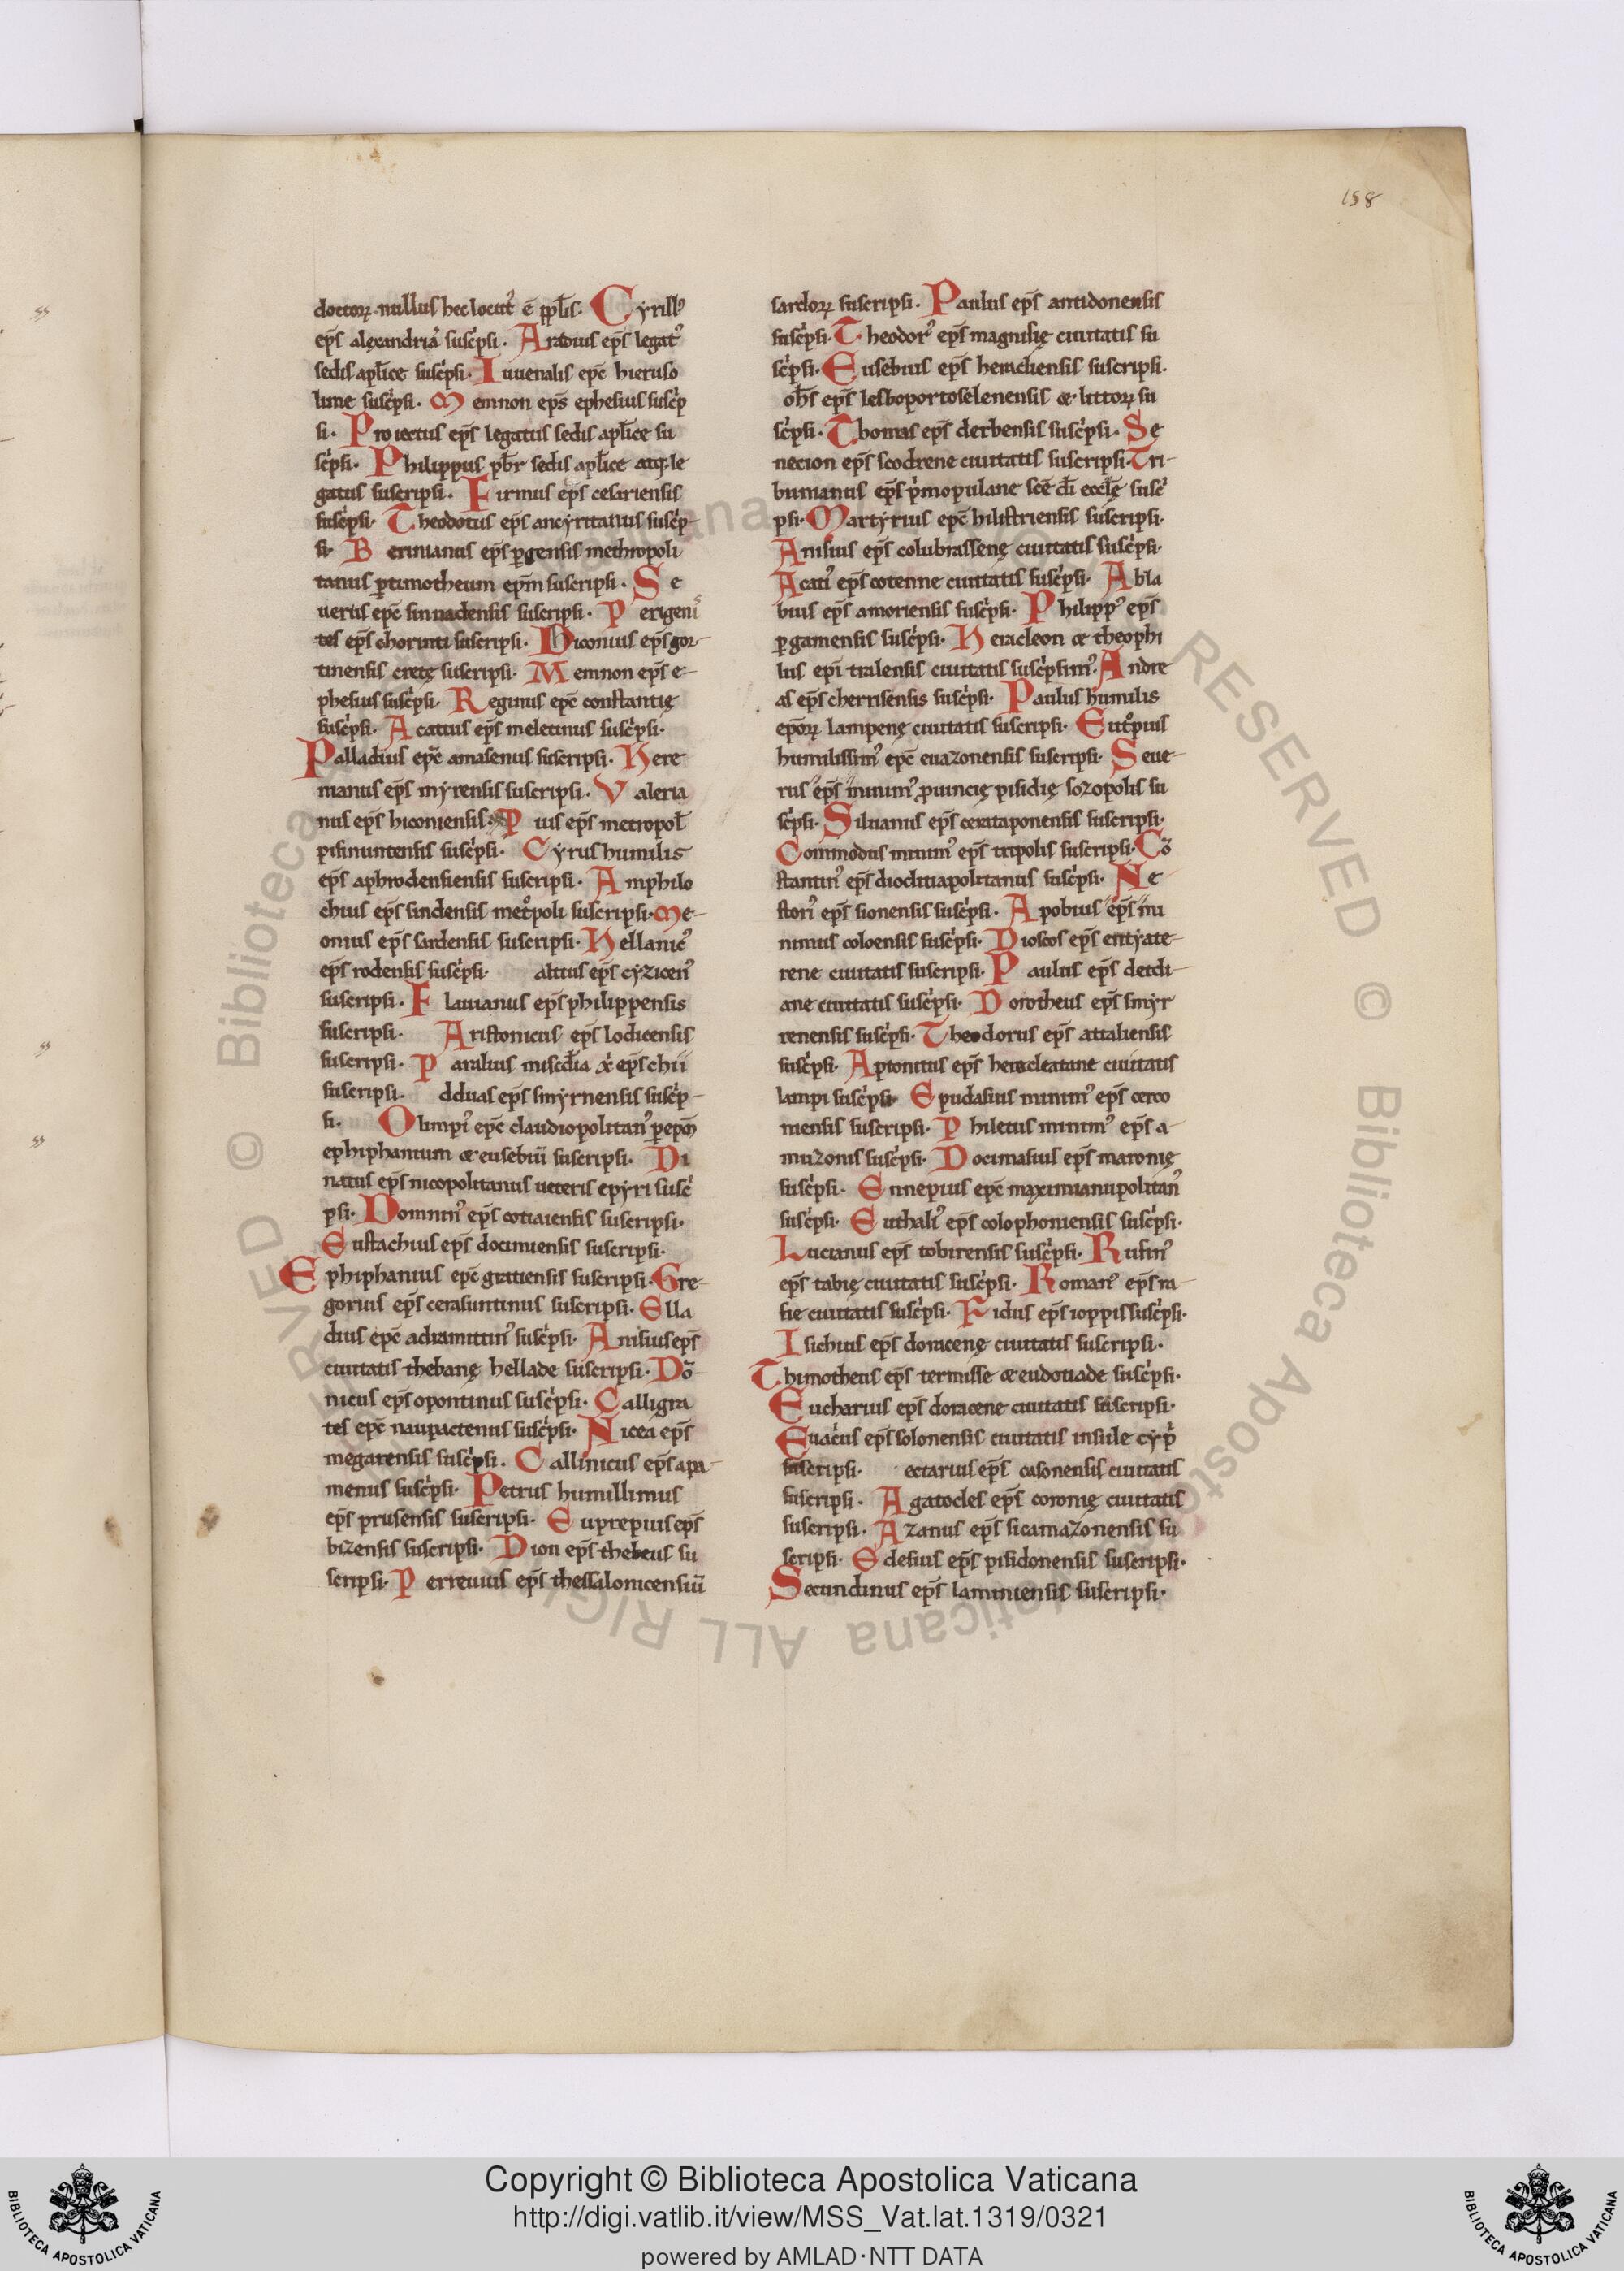 158
doctoꝝ nullus hec locut᾽ ē ppl̄is. Cyrill᾽
ep̄s alexandriā susc̄psi. Aradius ep̄s legat᾽
sedis apl̄ice susc̄psi. Iuuenalis epc̄ hieruso
lime susc̄psi. Memnon ep̄s ephesius susc̄p
si. Proiectus ep̄s legatus sedis apl̄ice su
sc̄psi. Philippus pb̄r sedis apl̄ice atq; le
gatus suscripsi. Firmus ep̄s cesariensis
susc̄psi. Theodotus ep̄s ancyritanus susc̄p-
si. Berinianus ep̄s ꝑgensis methropoli
tanus ꝑ timotheum ep̄m suscripsi. Se
uerus epc̄ sinnadensis suscripsi. Perigeni
tes ep̄s chorinti suscripsi. Hiconius ep̄s gor-
tinensis cretę suscripsi. Memnon ep̄s e-
phesius susc̄psi. Reginus epc̄ constantię
susc̄psi. Acatius ep̄s meletinus susc̄psi.
Palladius epc̄ amasenus suscripsi. Here
manus ep̄s myrensis suscripsi. Valeria
nus ep̄s hiconiensis. Pius ep̄s metropol̄
pisinuntensis susc̄psi. Cyrus humilis
ep̄s aphrodensiensis suscripsi. Amphilo
chius ep̄s sindensis met᾽poli suscripsi. Me-
onius ep̄s sardensis suscripsi. Hellanic᾽
ep̄s rodensis susc̄psi. altius ep̄s cyzicen᾽
suscripsi. Flauianus ep̄s philippensis
suscripsi. Aristonicus ep̄s lodicensis
suscripsi. Paralius misc̄dia ep̄s chii
suscripsi. dduas ep̄s smyrnensis susc̄p-
si. Olimpi᾽ epc̄ claudiopolitan᾽ ꝑ epōm
ephiphanium & eusebiū suscripsi. Di
natus ep̄s nicopolitanus ueteris epyri susc̄
psi. Domnin᾽ ep̄s cotiaiensis suscripsi.
Eustachius ep̄s docimiensis suscripsi.
Ephiphanius epc̄ gratiensis suscripsi. Gre-
gorius ep̄s cerasuntinus suscripsi. Ella
dius epc̄ adramittin᾽ susc̄psi. Anisius ep̄s
ciuitatis thebanę hellade suscripsi. Dō-
nicus ep̄s opontinus susc̄psi. Calligra
tes epc̄ naupactenus susc̄psi. Nicea ep̄s
megarensis susc̄psi. Callinicus ep̄s apa-
menus susc̄psi. Petrus humillimus
ep̄s prusensis suscripsi. Euprepius ep̄s
bizensis suscripsi. Dion ep̄s thebeus su
scripsi. Perreuius ep̄s thessalonicensiū
sardoꝝ suscripsi. Paulus ep̄s antidonensis
susc̄psi. Theodor᾽ ep̄s magnisię ciuitatis su
sc̄psi. Eusebius ep̄s heracliensis suscripsi.
ohs̄ ep̄s lesboportoselenensis & littoꝝ su
sc̄psi. Thomas ep̄s derbensis susc̄psi. Se
necion ep̄s scodrene ciuitatis suscripsi. Tri-
bunianus ep̄s p̄mopulane scē dī ecclę susc̄
psi. Martyrius epc̄ hilistriensis suscripsi.
Anisius ep̄s colubrassenę ciuitatis susc̄psi.
Acati᾽ ep̄s cotenne ciuitatis susc̄psi. Abla
bius ep̄s amoriensis susc̄psi. Philipp᾽ ep̄s
ꝑgamensis susc̄psi. Heracleon & theophi
lus epī tralensis ciuitatis susc̄psim᾽. Andre
as ep̄s cherrisensis susc̄psi. Paulus humilis
epōꝝ lampenę ciuitatis suscripsi. Eut᾽pius
humilissim᾽ epc̄ euazonensis suscripsi. Seue-
rus ep̄s minim᾽ ꝓuincię pisidię sozopolis su
sc̄psi. Siluanus ep̄s ceretaponensis suscripsi.
Commodus minim᾽ ep̄s tripolis suscripsi. Cō
stantin᾽ ep̄s diocliciapolitanus susc̄psi. Ne-
stori᾽ ep̄s sionensis susc̄psi. Apobius ep̄s mi
nimus coloensis susc̄psi. Dioscos ep̄s entyate-
rene ciuitatis suscripsi. Paulus ep̄s detdi-
ane ciuitatis susc̄psi. Dorotheus ep̄s smyr
renensis susc̄psi. Theodorus ep̄s attaliensis
susc̄psi. Aptonitus ep̄s heracleatane ciuitatis
lampi susc̄psi. Spudasius minim᾽ ep̄s cerco
mensis suscripsi. Philetus minim᾽ ep̄s a-
muzonis susc̄psi. Docimasius ep̄s maronię
susc̄psi. Ennepius epc̄ maximianupolitan᾽
susc̄psi. Euthali᾽ ep̄s colophoniensis susc̄psi.
Lucianus ep̄s tobirensis susc̄psi. Rufin᾽
ep̄s tabię ciuitatis susc̄psi. Roman᾽ ep̄s ra-
fie ciuitatis susc̄psi. Fidus ep̄s ioppis susc̄psi.
Isichius ep̄s doracenę ciuitatis suscripsi.
Thimotheus ep̄s termisse & eudotiade susc̄psi.
Eucharius ep̄s doracene ciuitatis suscripsi.
Euac̄us ep̄s solonensis ciuitatis insule cyp̄
suscripsi. ectarius ep̄s casonensis ciuitatis
suscripsi. Agatocles ep̄s coronię ciuitatis
suscripsi. Azanus ep̄s sicamazonensis su
scripsi. Edesius ep̄s pisidonensis suscripsi.
Secundinus ep̄s laminiensis suscripsi.
Copyright © Biblioteca Apostolica Vaticana
http://digi.vatlib.it/view/MSS_Vat.lat.1319/0321
powered by AMLAD·NTT DATA
BIBLIOTECA APOSTOLICA VATICANA
BIBLIOTECA APOSTOLICA VATICANA
© Biblioteca Apostolica Vaticana ALL RIGHTS RESERVED